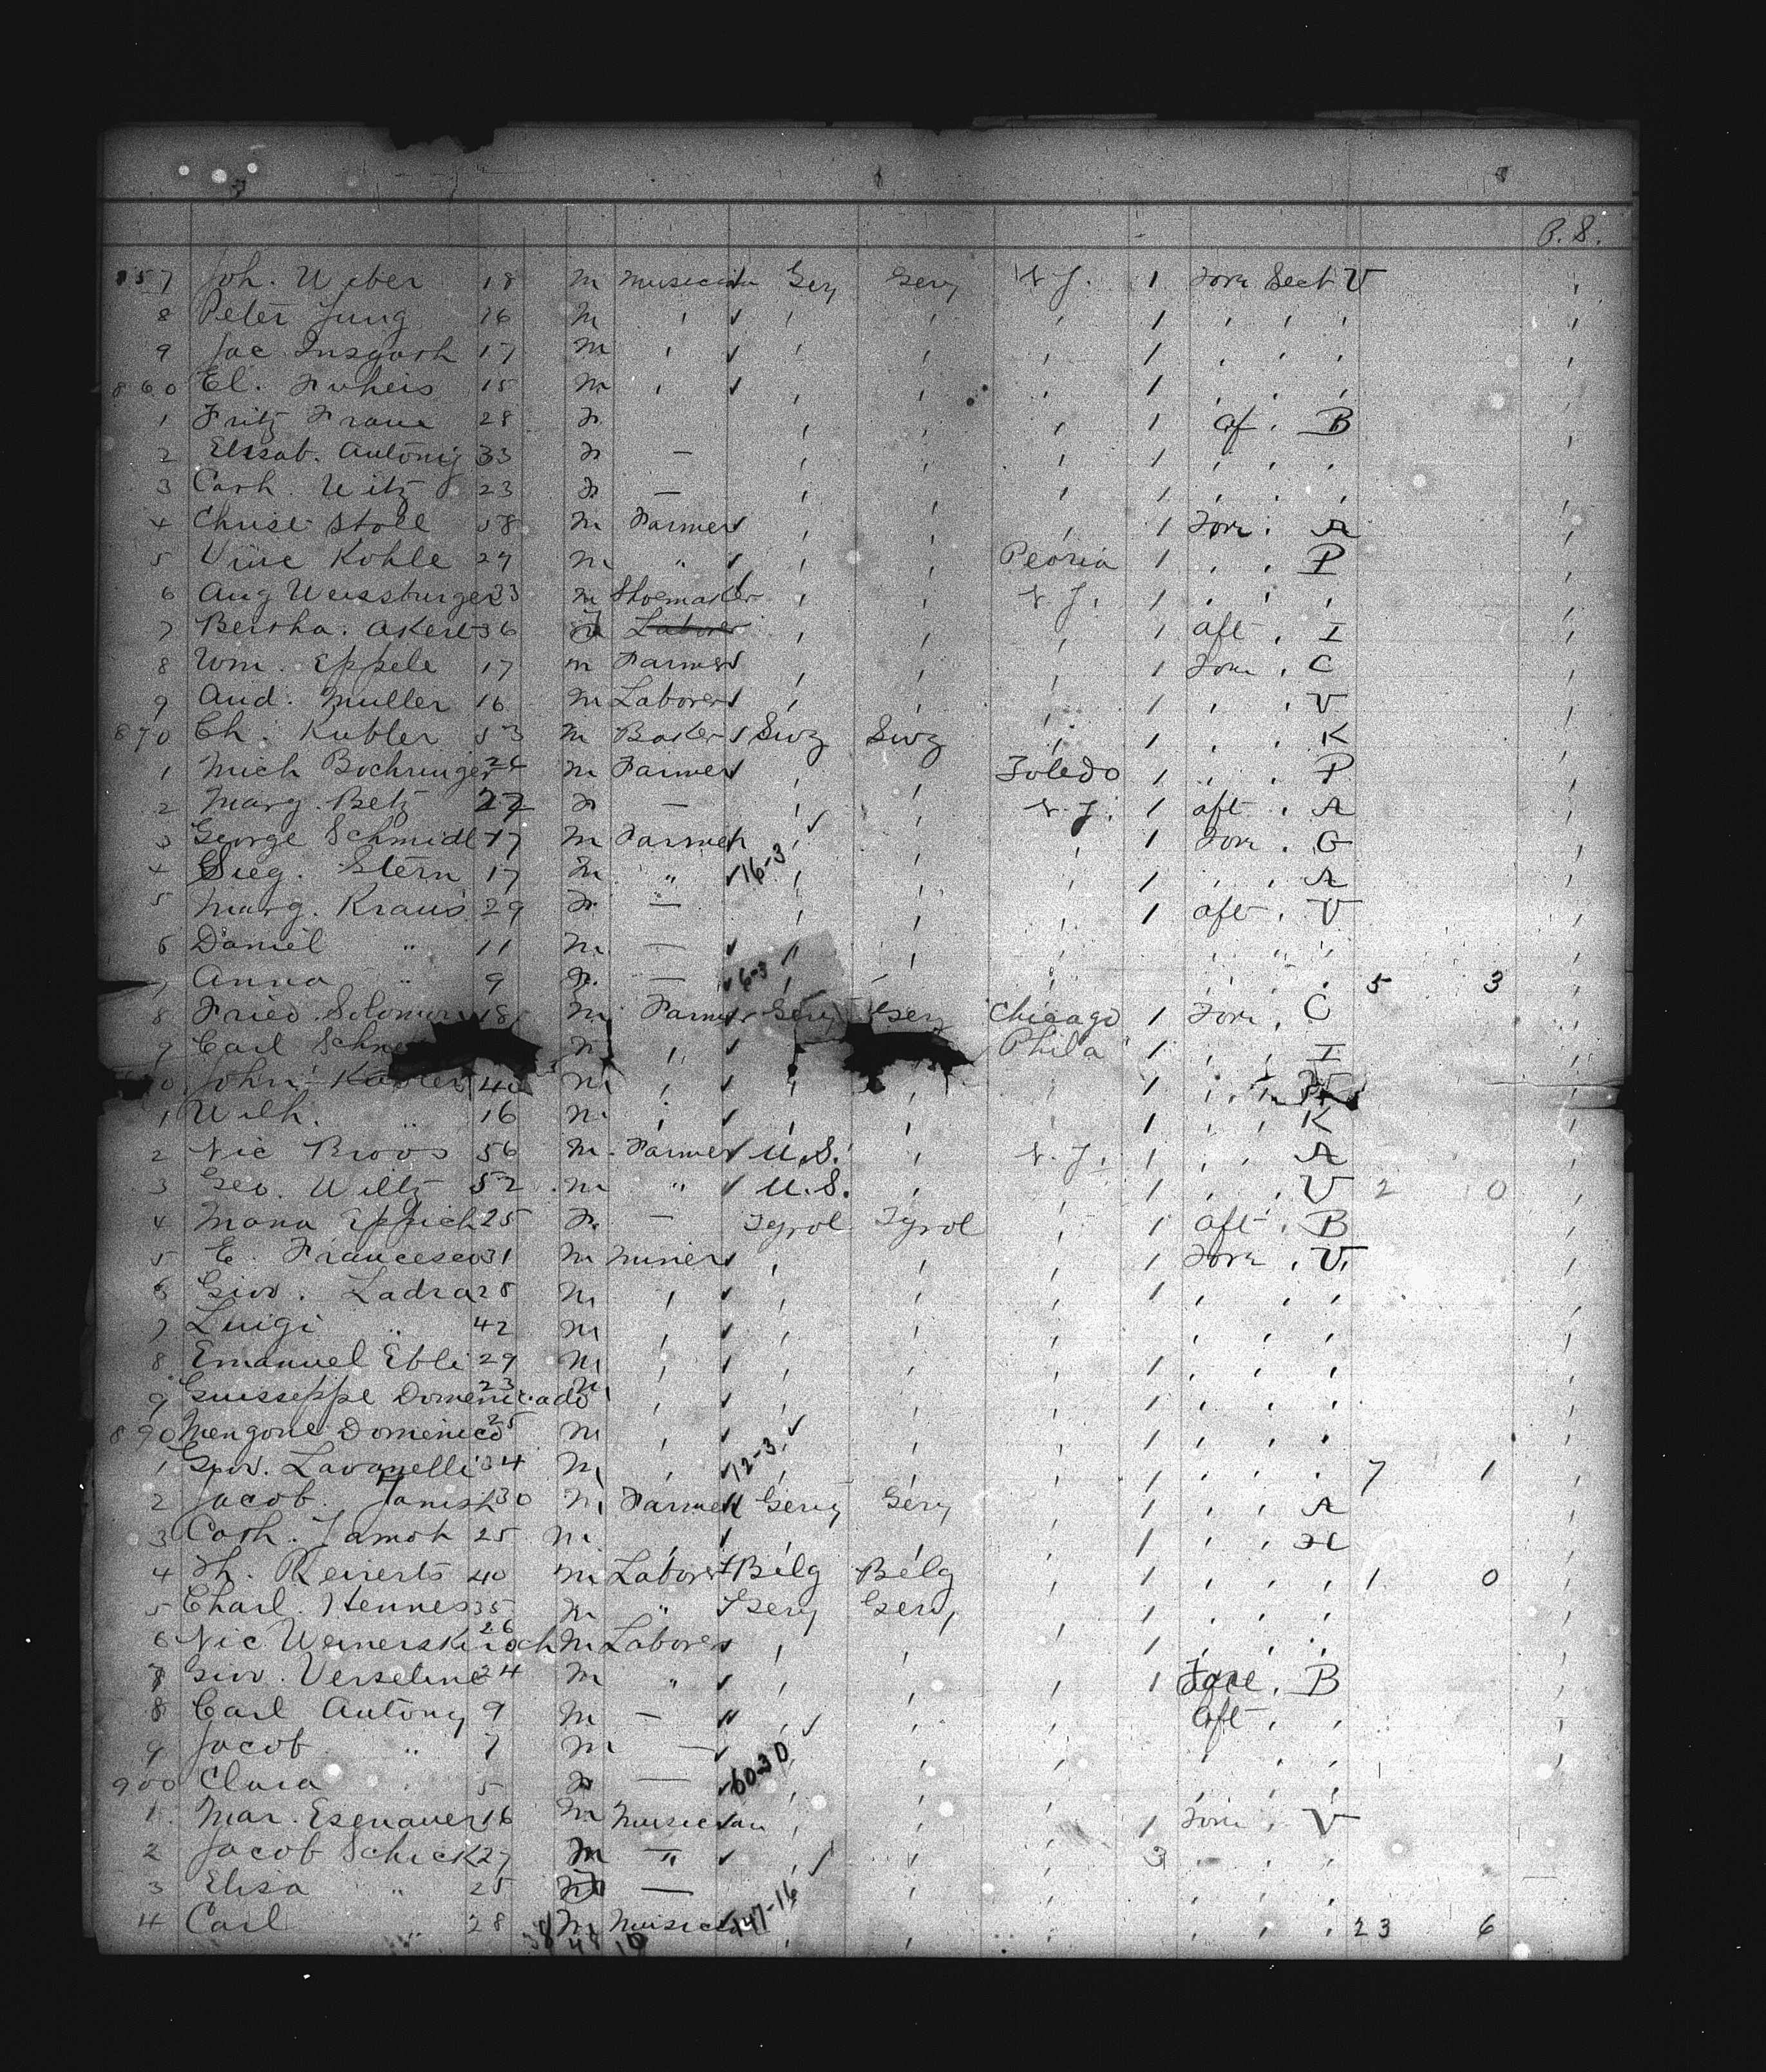 P. 8.
857 Joh. Weber 18 M Musician Gery Gery N.Y. 1 Forw Sect V
8 Peter Jung 16 M ' ✓ ' ' ' 1 ' ' '
9 Jac 17 M ' ✓ ' ' ' 1 ' ' '
860 El. 15 M ' ✓ ' ' ' 1 ' ' '
1 Fritz 28 F ' ' ' 1 af. B
2 Elisab. Antony 33 F — ' ' ' 1 ' ' '
3 Cath. Witz 23 F — ' ' ' 1 ' ' '
4 Christ Stoll 58 M Farmer ✓ ' ' ' 1 Forw ' A
5 Vinc Kohle 29 M " ✓ ' ' Peoria 1 ' ' P
6 Aug Weissburger 33 M Shoemaker ' ' N.Y. 1 ' ' '
7 Bertha. Akert 36 F Laborer ' ' ' 1 aft ' I
8 Wm. Eppele 17 m Farmer ✓ ' ' ' 1 Forw ' C
9 And. Muller 16 M Laborer ✓ ' ' ' 1 ' ' V
870 Ch. Kubler 53 M Baker ✓ Swz Swz ' 1 ' ' K
1 Mich Bochringer 24 M Farmer ✓ ' ' Toledo 1 ' ' P
2 Marg. Betz 22 F — ' ' N.Y. 1 aft ' A
3 George Schmidt 17 M Farmer ' ✓ ' ' 1 Forw ' G
4 Sieg. Stern 17 M " ✓ 16-3 ' ' ' 1 ' ' A
5 Marg. Kraus 29 F — ' ' ' 1 aft ' V
6 Daniel " 11 M — ✓ ' ' ' ' ' '
7 Anna " 9 F. — ✓ 6-3 ' ' ' ' ' ' 5 3
8 Fried. Solomon 18 M Farmer Gery Gery Chicago 1 Forw ' C
9 Carl M " ✓ Phila 1 ' ' I
0 John Kubler 40 M ' ✓ ' ' ' 1 ' '
1 Wilh. " 16 M ' ✓ ' ' ' 1 ' ' K
2 Nic Broos 56 M. Farmer ✓ U.S. ' N.Y. 1 ' ' A
3 Geo. Wiltz 52 M " ✓ U.S. ' ' 1 ' ' V 2 0
4 Maria Eppich 25 F. — Tyrol Tyrol ' 1 aft ' B
5 E. Francesco 31 M Miner ✓ ' ' ' 1 Forw ' V
6 Giov. Ladra 28 M ' ✓ ' ' ' 1 ' ' '
7 Luigi " 42 M ' ✓ ' ' ' ' ' '
8 Emanuel Ebli 29 M ' ✓ ' ' ' 1 ' ' '
9 Guisseppe Domenicado 23 M ' ✓ ' ' ' 1 ' ' '
890 Mengone Domenico 25 M ' ✓ ' ✓ ' ' 1 ' ' '
1 Giov. Lavanelli 34 M ' ✓ 12-3 ' ' ' 1 ' ' ' 7 1
2 Jacob. Janish 30 M Farmer Gery Gery ' 1 ' ' A
3 Cath. 25 M ' ✓ ' ' ' 1 ' ' H
4 Th. Reinerts 40 M Laborer Belg Belg ' 1 ' ' ' 1 0
5 Charl. Hennes 35 M " Gery Gery ' 1 ' ' '
6 Nic Weinerskirsch 26 M Laborer ✓ ' ' ' 1 ' ' '
7 Giov. Verseline 24 M " ✓ ' ' ' 1 Forw ' B
8 Carl Antony 9 M — ✓ ' ✓ ' ' aft ' '
9 Jacob " 7 M — ✓ ' ' ' ' ' '
900 Clara ' 5 F — ✓ 60-30 ' ' ' ' ' '
1 Mar. Esenauer 16 M Musician ' ' ' 1 Forw ' V
2 Jacob Schick 27 M " ✓ ' ✓ ' ' 3 ' ' '
3 Elisa " 25 F — ' ' ' ' '
4 Carl " 28 M Musician 147-16 ' ' ' ' ' ' 23 6
38 48 10